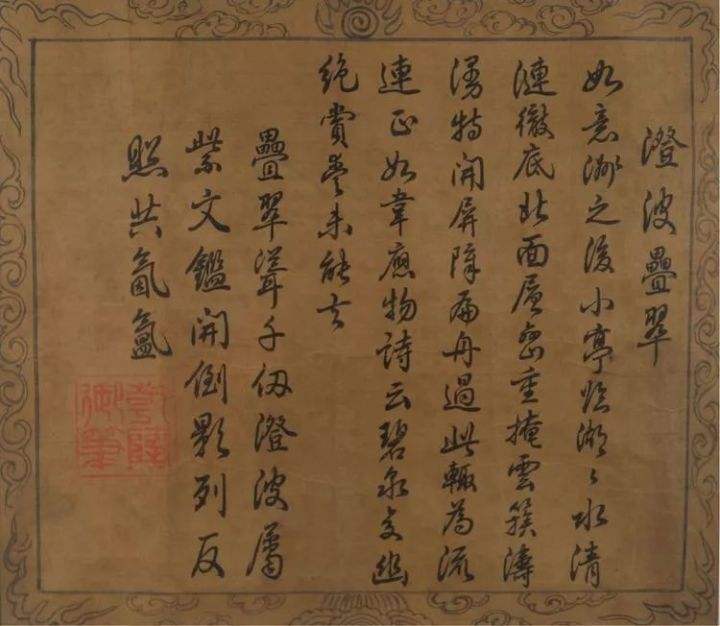 澄波疊翠
如意洲之後小亭臨湖〻水清
漣徹底北面層巒重掩雲簇濤
湧特開屏障扁舟過此輒為流
連正如韋應物詩云碧泉交幽
絕賞愛未能去
疊翠聳千仞澄波屬
紫文鑑開倒影列反
照共氤氳